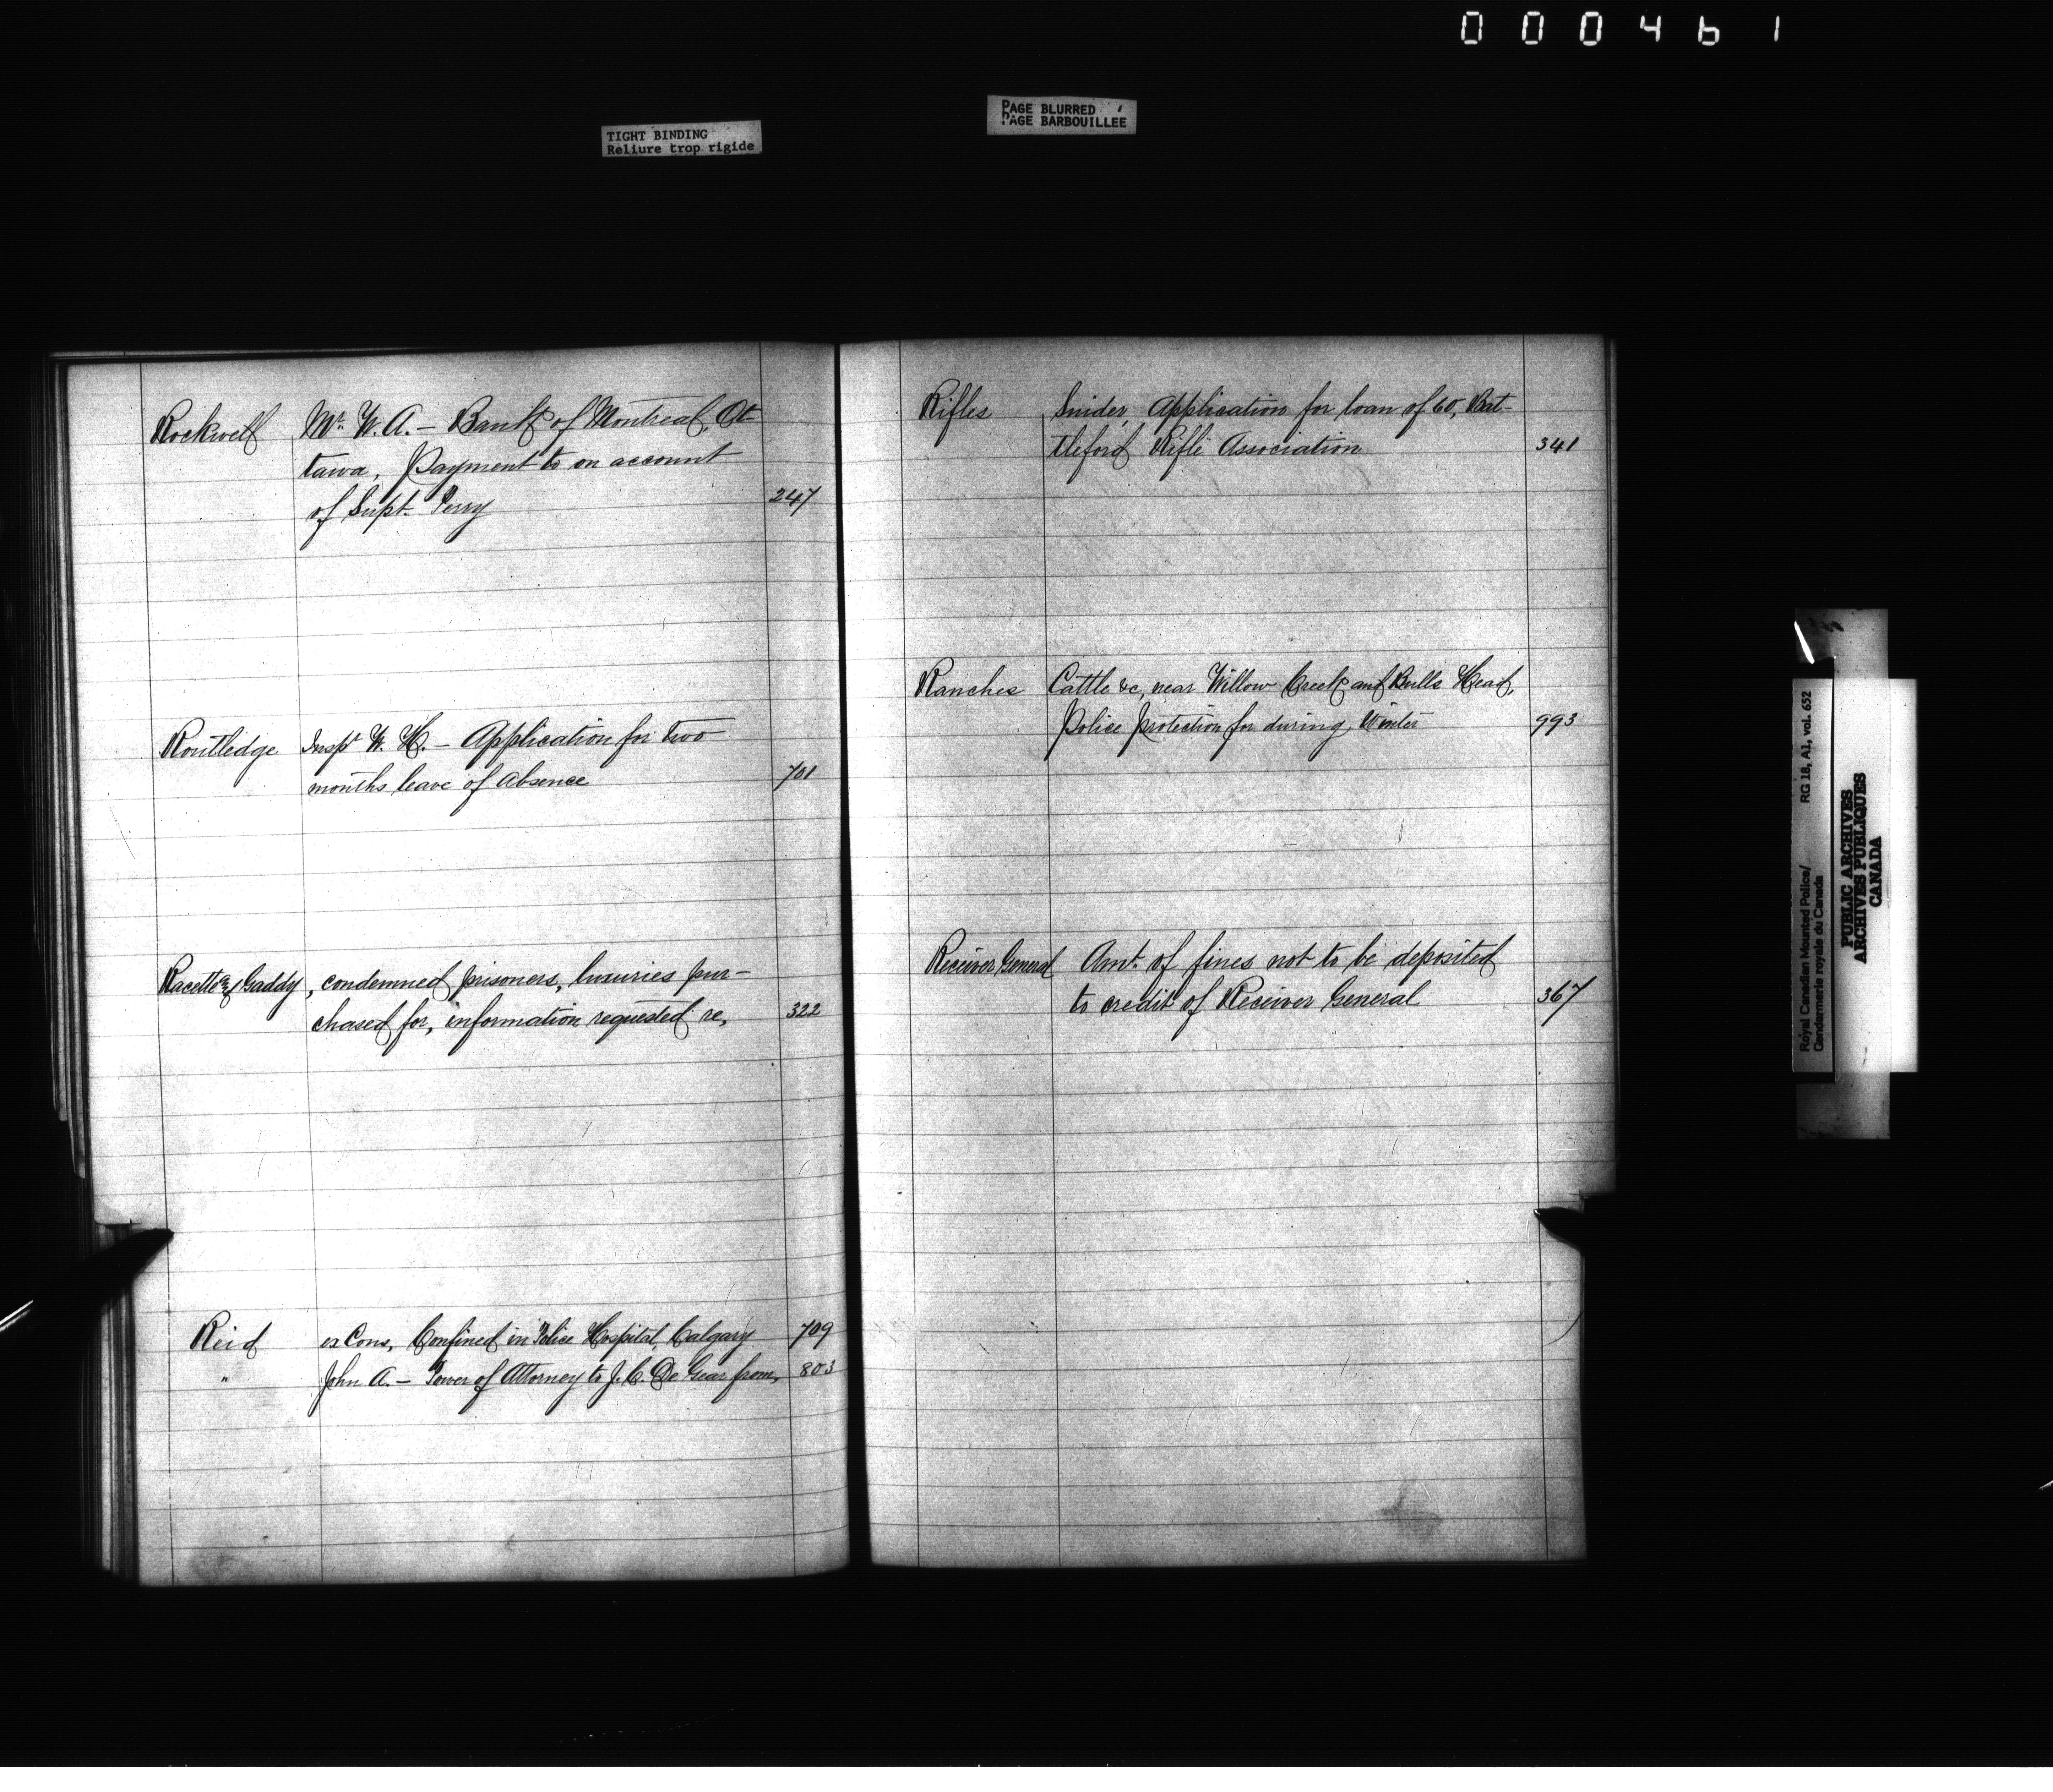 000461
TIGHT BINDING
Reliure trop rigide
PAGE BLURRED
PAGE BARBOUILLÉE
Rockwell Mr. W. A. – Bank of Montreal, Ot-
tawa, Payment to on account
of Supt. Perry 247
Routledge Inspt W. H. – Application for two
months leave of absence 701
Racette & Gaddy, condemned prisoners, luxuries pur-
chased for, information requested re, 322
Reid ex Cons, Confined in Police Hospital, Calgary 709
" John A. – Power of Attorney to J. C. De Gear from, 803
Rifles Snider, Application for loan of 60, Bat-
tleford Rifle Association 341
Ranches Cattle &c, near Willow Creek and Bulls Head,
Police protection for during Winter 993
Receiver General Amt. of fines not to be deposited
to credit of Receiver General 367
Royal Canadian Mounted Police/ RG 18, A1, vol. 652
Gendarmerie royale du Canada
PUBLIC ARCHIVES
ARCHIVES PUBLIQUES
CANADA